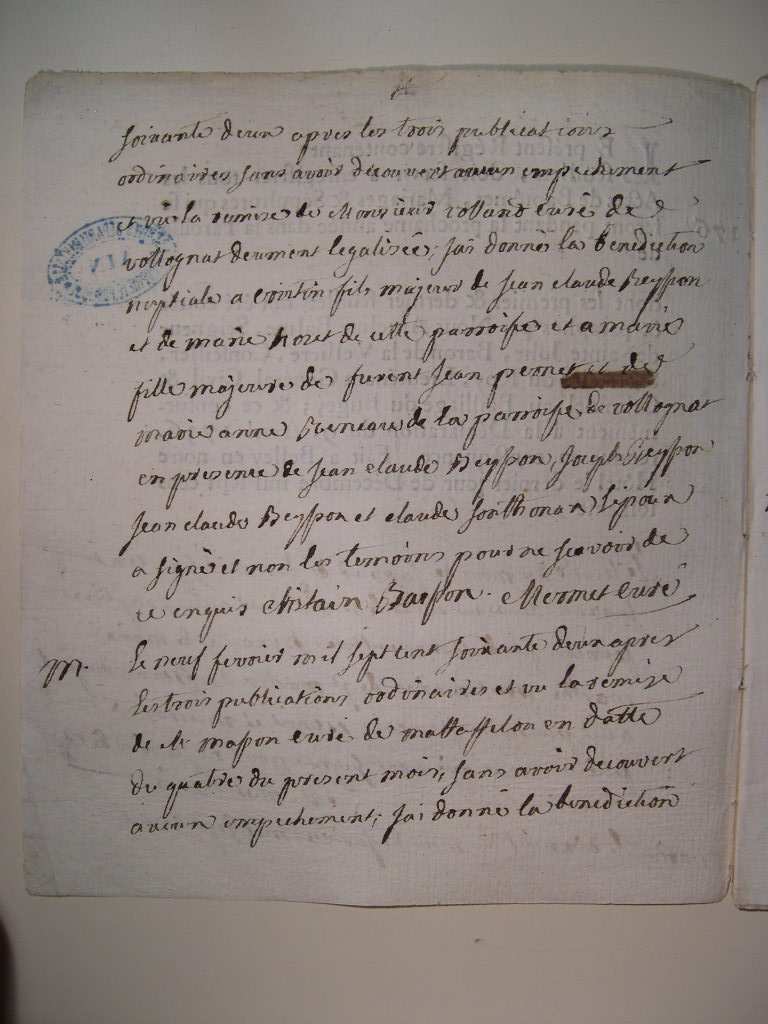 soixante deux apres les trois publications
ordinaires sans avoir decouvert aucun empechement
et vû la remise de Monsieur volland curé de
vollognat deument legalisée; jai donné la benediction
nuptiale a fils majeur de jean claude Reysson
et de marie de cette parroisse et a marie
fille majeure de furent jean pernet et de
marie anne de la parroisse de vollognat
en presence de jean claude Reysson, joseph Reysson
jean claude Reysson et claude Sonthonax Lepoux
a signé et non les temoins pour ne scavoir de
ce enquis Reysson. Mermet curé
M. le neuf fevrier mil sept cent soixante deux apres
les trois publications ordinaires et vu la remise
de Mr masson curé de mattaffelon en datte
du quatre du present mois, sans avoir decouvert
aucun empechement; jai donné la benediction